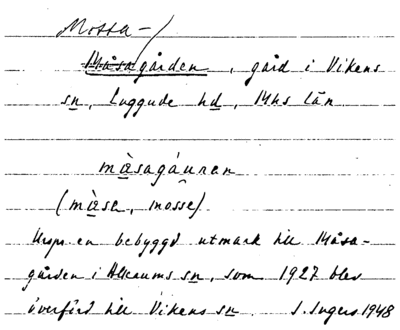 Mossa-/
Måsagården, gård i Vikens
sn, Luggude hd, Mhs län
mɑ̀sagáu̯ren
(mɑ̀sa, mosse)
Urspr en bebyggd utmark till Måsa-
gården i Allerums sn, som 1927 blev
överförd till Vikens sn. I. Ingers 1948